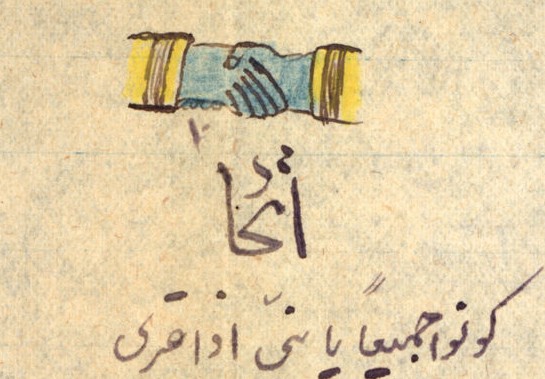 اتحاد
كونوا جميعًا يا بنىّ اذا اعترى